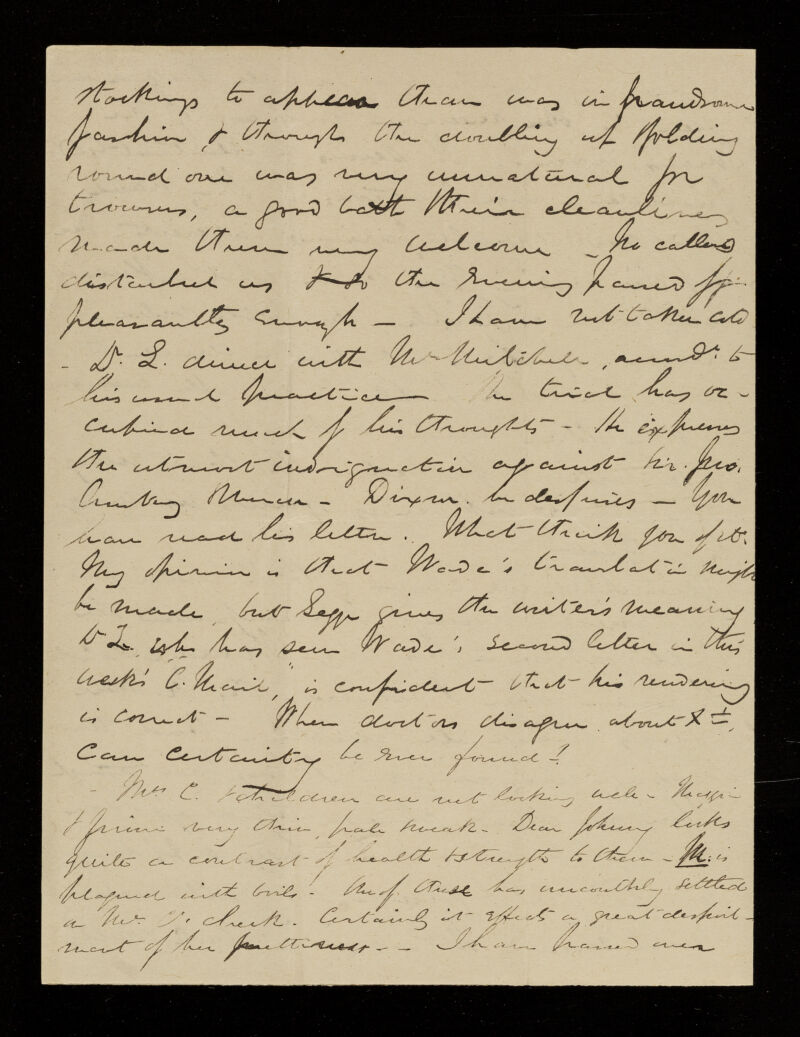 stockings to appear than was in handsome
fashion, & through the doubling of folding
round one was very unnatural for
trowsers, a good both their cleanliness
made them very welcome — No callers
disturbed us & so the evening passed
pleasantly enough — I have not taken cold
- Dr. L. dined with Mr Mitchell, accordg. to
his usual practice — The trial has oc-
cupied much of his thoughts — He expresses
the utmost indignation against Sir. Jno.
— Dixon. he despises — You
have read his letter. What think you of it.
My opinion is that Wade's translation might
be made, but Legge gives the writer's meaning
Dr L. who has seen Wade's second letter in this
week's "C. Mail," is confident that his rendering
is correct — When doctors disagree about
can certainty be ever found!
- Mrs C. & children are not looking well —
& very thin, pale & weak — Dear Johnny looks
quite a contrast of health & strength to them — M. is
plagued with boils — One of these has uncouthly settled
on Mr. cheek. Certainly it effects a great despoil-
ment of her prettiness — — I have passed over